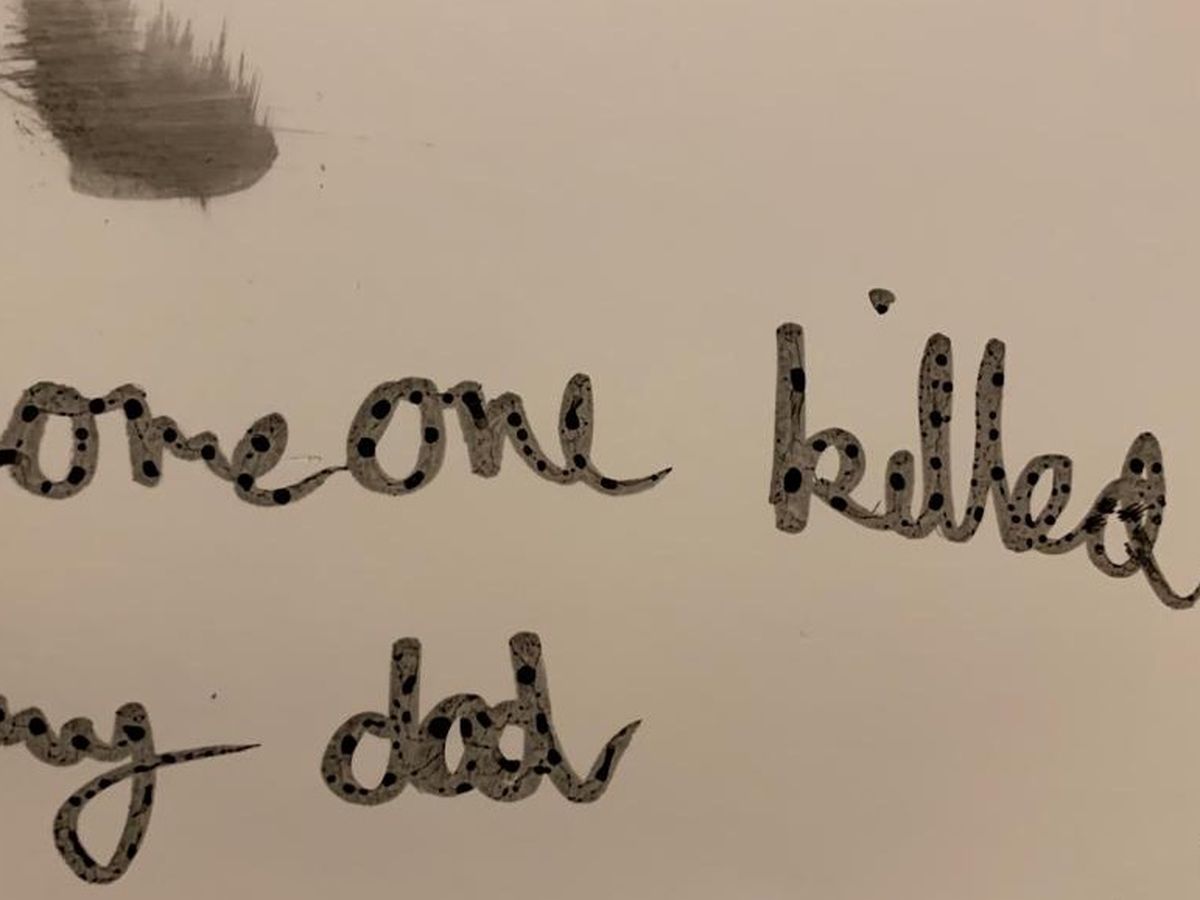 omeone killed
my dad